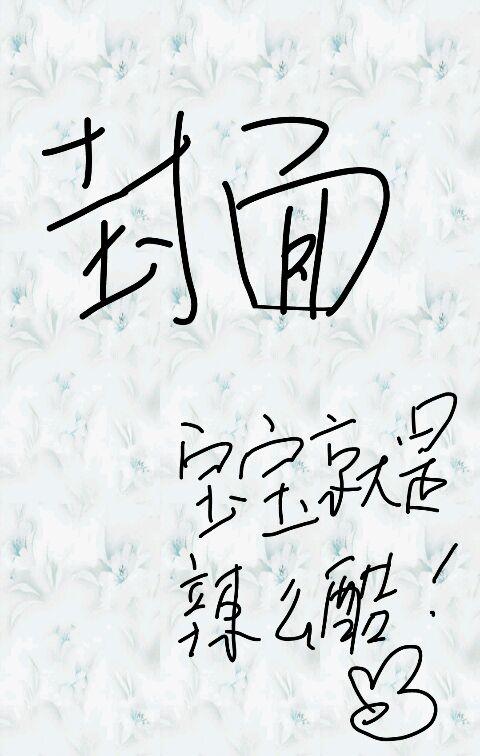 封面
宝宝就是
辣么酷!